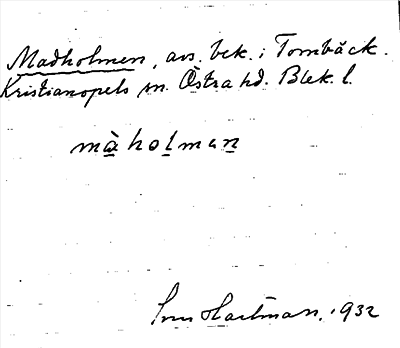 Madholmen, avs. bek. i Tombäck.
Kristianopels sn. Östra hd. Blek. l.
màholman
Sven Hartman. 1932